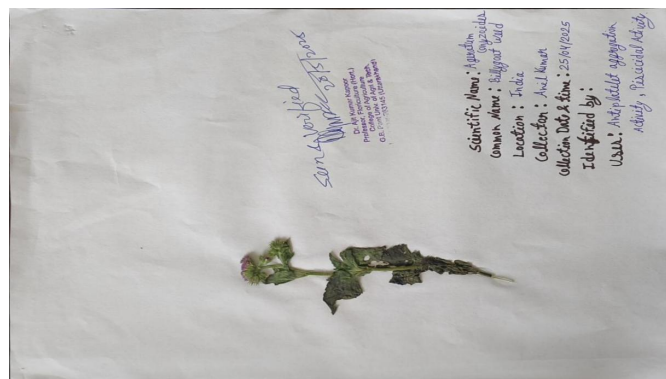 Seen & Verified
20/5/2025
Dr. Ajit Kumar Kapoor
Professor, Floriculture (Hort.)
College of Agriculture
Univ. of Agri & Tech.
(Uttarakhand)
Scientific Name: Ageratum
conyzoides
Common Name: Billygoat weed
Location: India
Collection: Anil Kumar
Collection Date & time: 25/04/2025
Identified by:
Uses: Antiplatelet aggregation
Activity, Piscicidal Activity